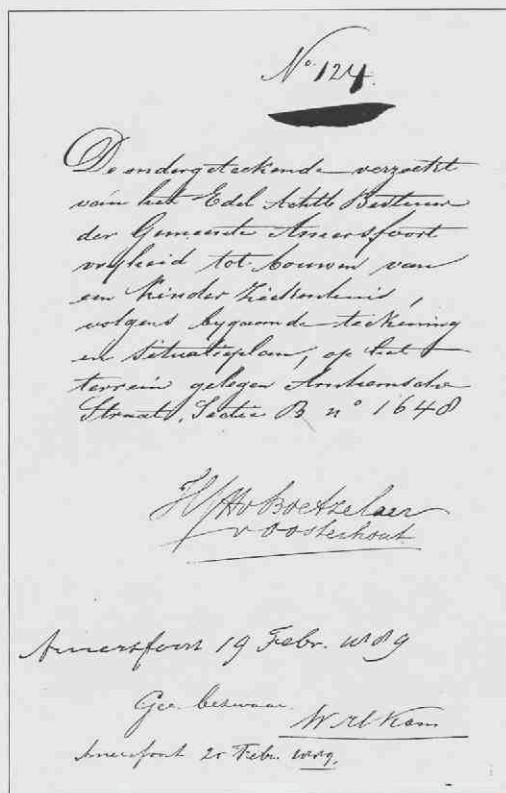 No 124.
De ondergeteekende verzoekt
van het Edel Achtb Bestuur
der Gemeente Amersfoort
vrijheid tot bouwen van
een Kinder Ziekenhuis,
volgens bijgaande teekening
en Situatieplan, op het
terrein gelegen Arnhemsche
Straat, Sectie B no 1648
v Boetzelaer
v Oosterhout
Amersfoort 19 Febr. 1889
Geen bezwaar
Amersfoort Febr. 1889.